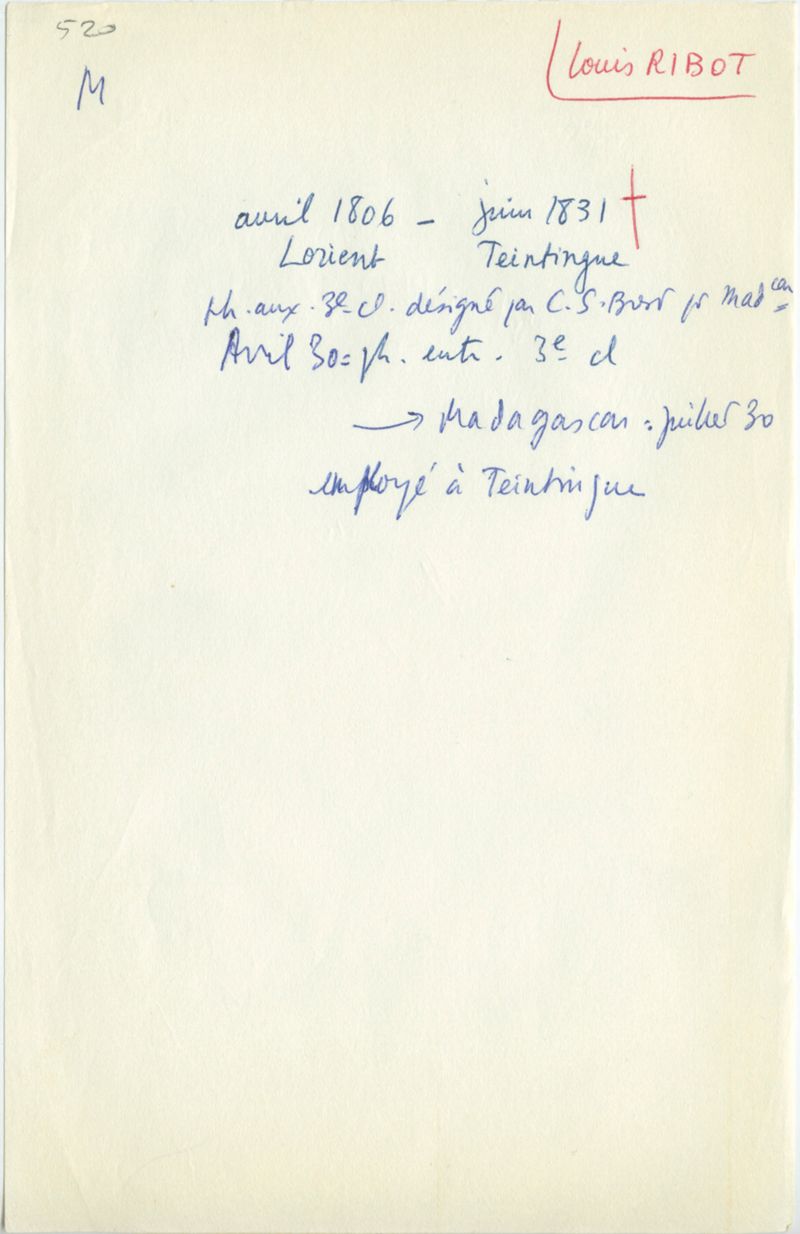 520
M
Louis RIBOT
avril 1806 – juin 1831 †
Lorient Teintingue
ph. aux. 3e cl. désigné par C.S. Brest pr Madcar
Avril 30 = ph. entr. 3e cl
→ Madagascar = juillet 30
employé à Teintingue